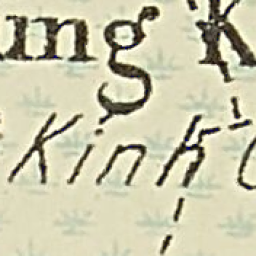 ung K
Kinh